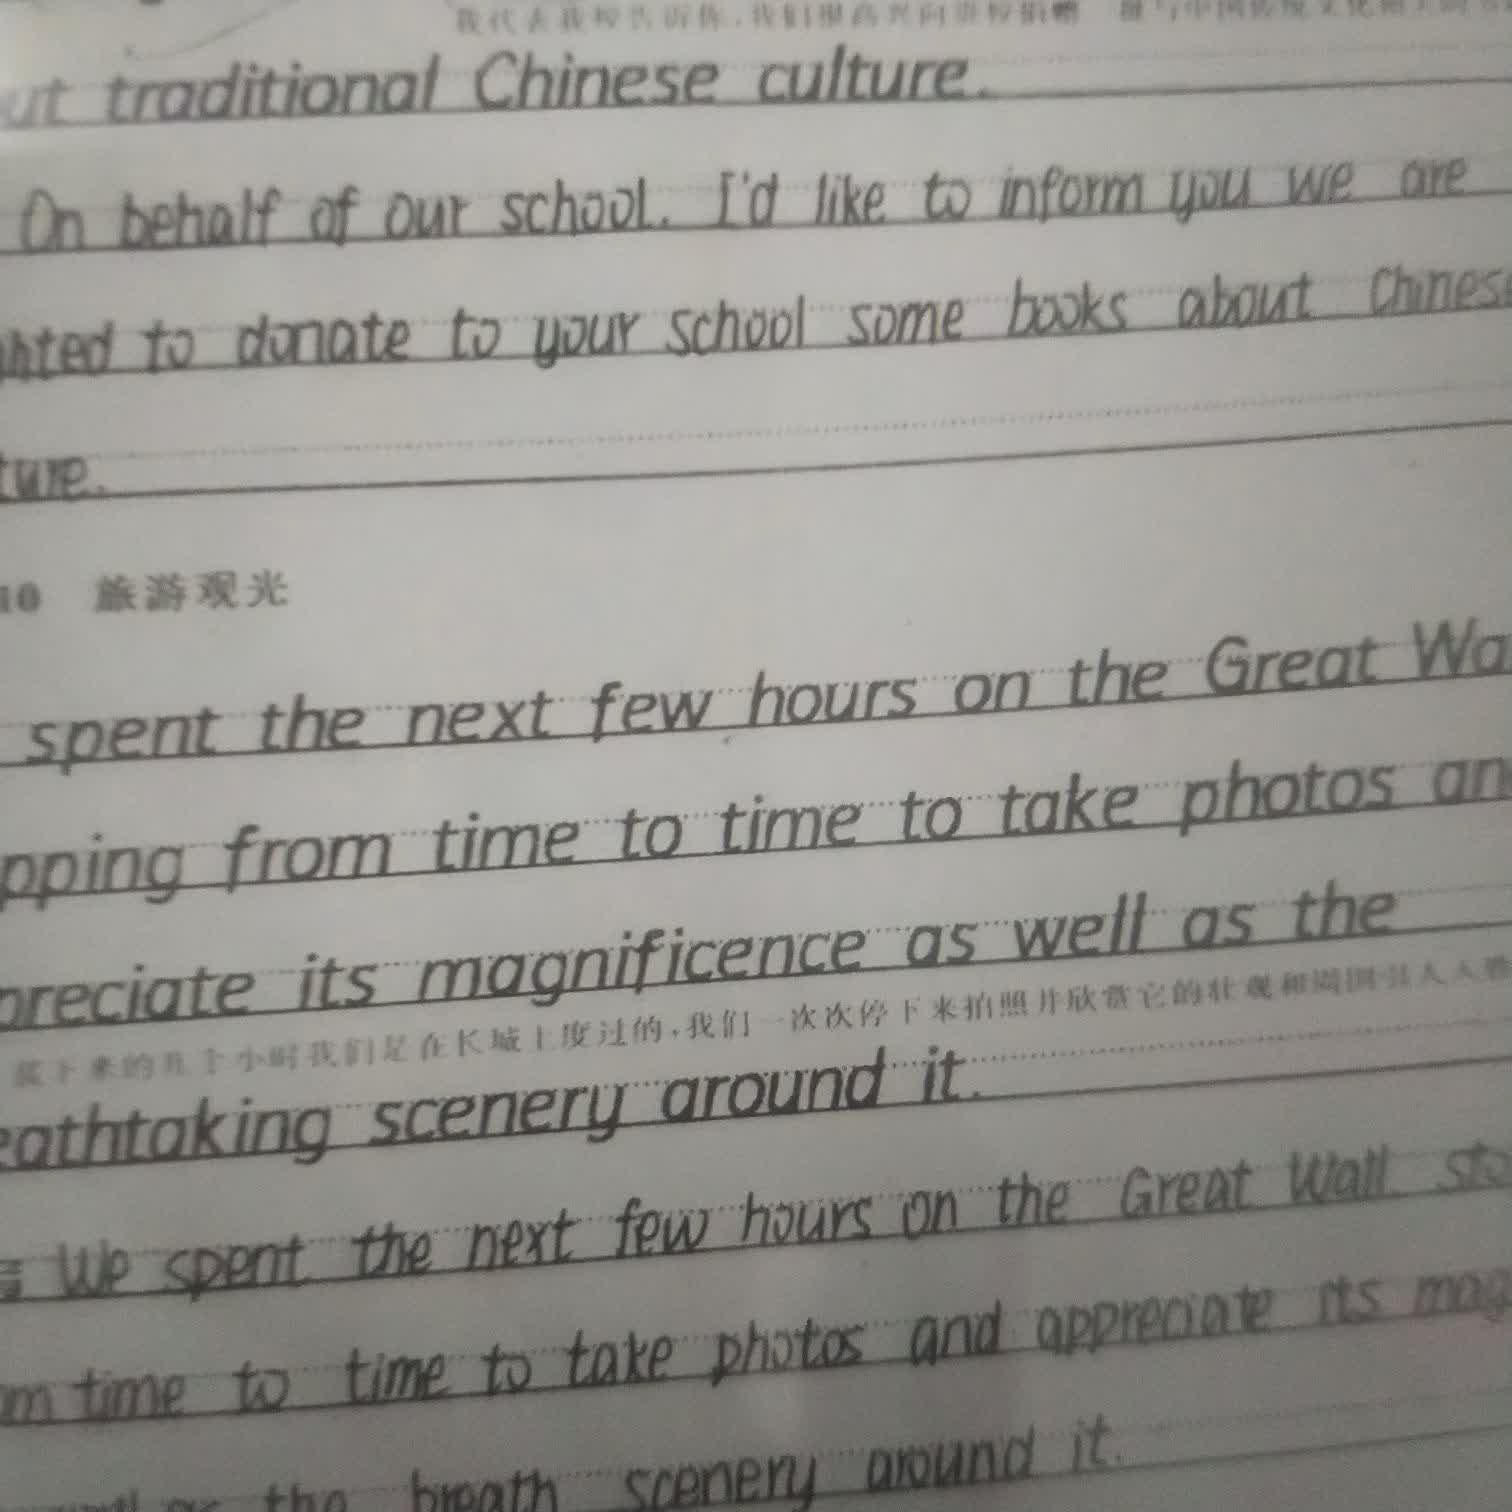 我代表我校告诉你，我们很高兴向贵校捐赠
ut traditional Chinese culture.
On behalf of our school. I'd like to inform you we are
hted to donate to your school some books about Chines
ture.
10 旅游观光
spent the next few hours on the Great Wa
pping from time to time to take photos an
preciate its magnificence as well as the
接下来的几个小时我们是在长城上度过的，我们一次次停下来拍照并欣赏它的壮观和周围
eathtaking scenery around it.
We spent the next few hours on the Great Wall sto
m time to time to take photos and appreciate its mag
as the breath scenery around it.